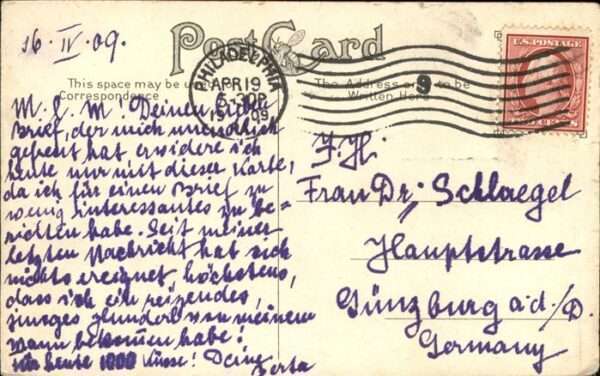 16. IV. 09.
Post Card
This space may be
Correspondence
The Address to be
Written Here
PHILADELPHIA
APR 19
1909
9
U.S. POSTAGE
M. L. M! Deinen
Brief, der mich unendlich
gefreut hat erwidere ich
heute nur mit dieser Karte,
da ich für einen Brief zu
wenig interessantes zu be=
richten habe. Seit meiner
letzten Nachricht hat sich
nichts ereignet höchstens,
dass ich ein reizendes,
von meinem
Mann bekommen habe!
heute 1000 Küsse! Deine
F. H.
Frau Dr. Schlaegel
Hauptstrasse
Günzburg a/d. D.
Germany